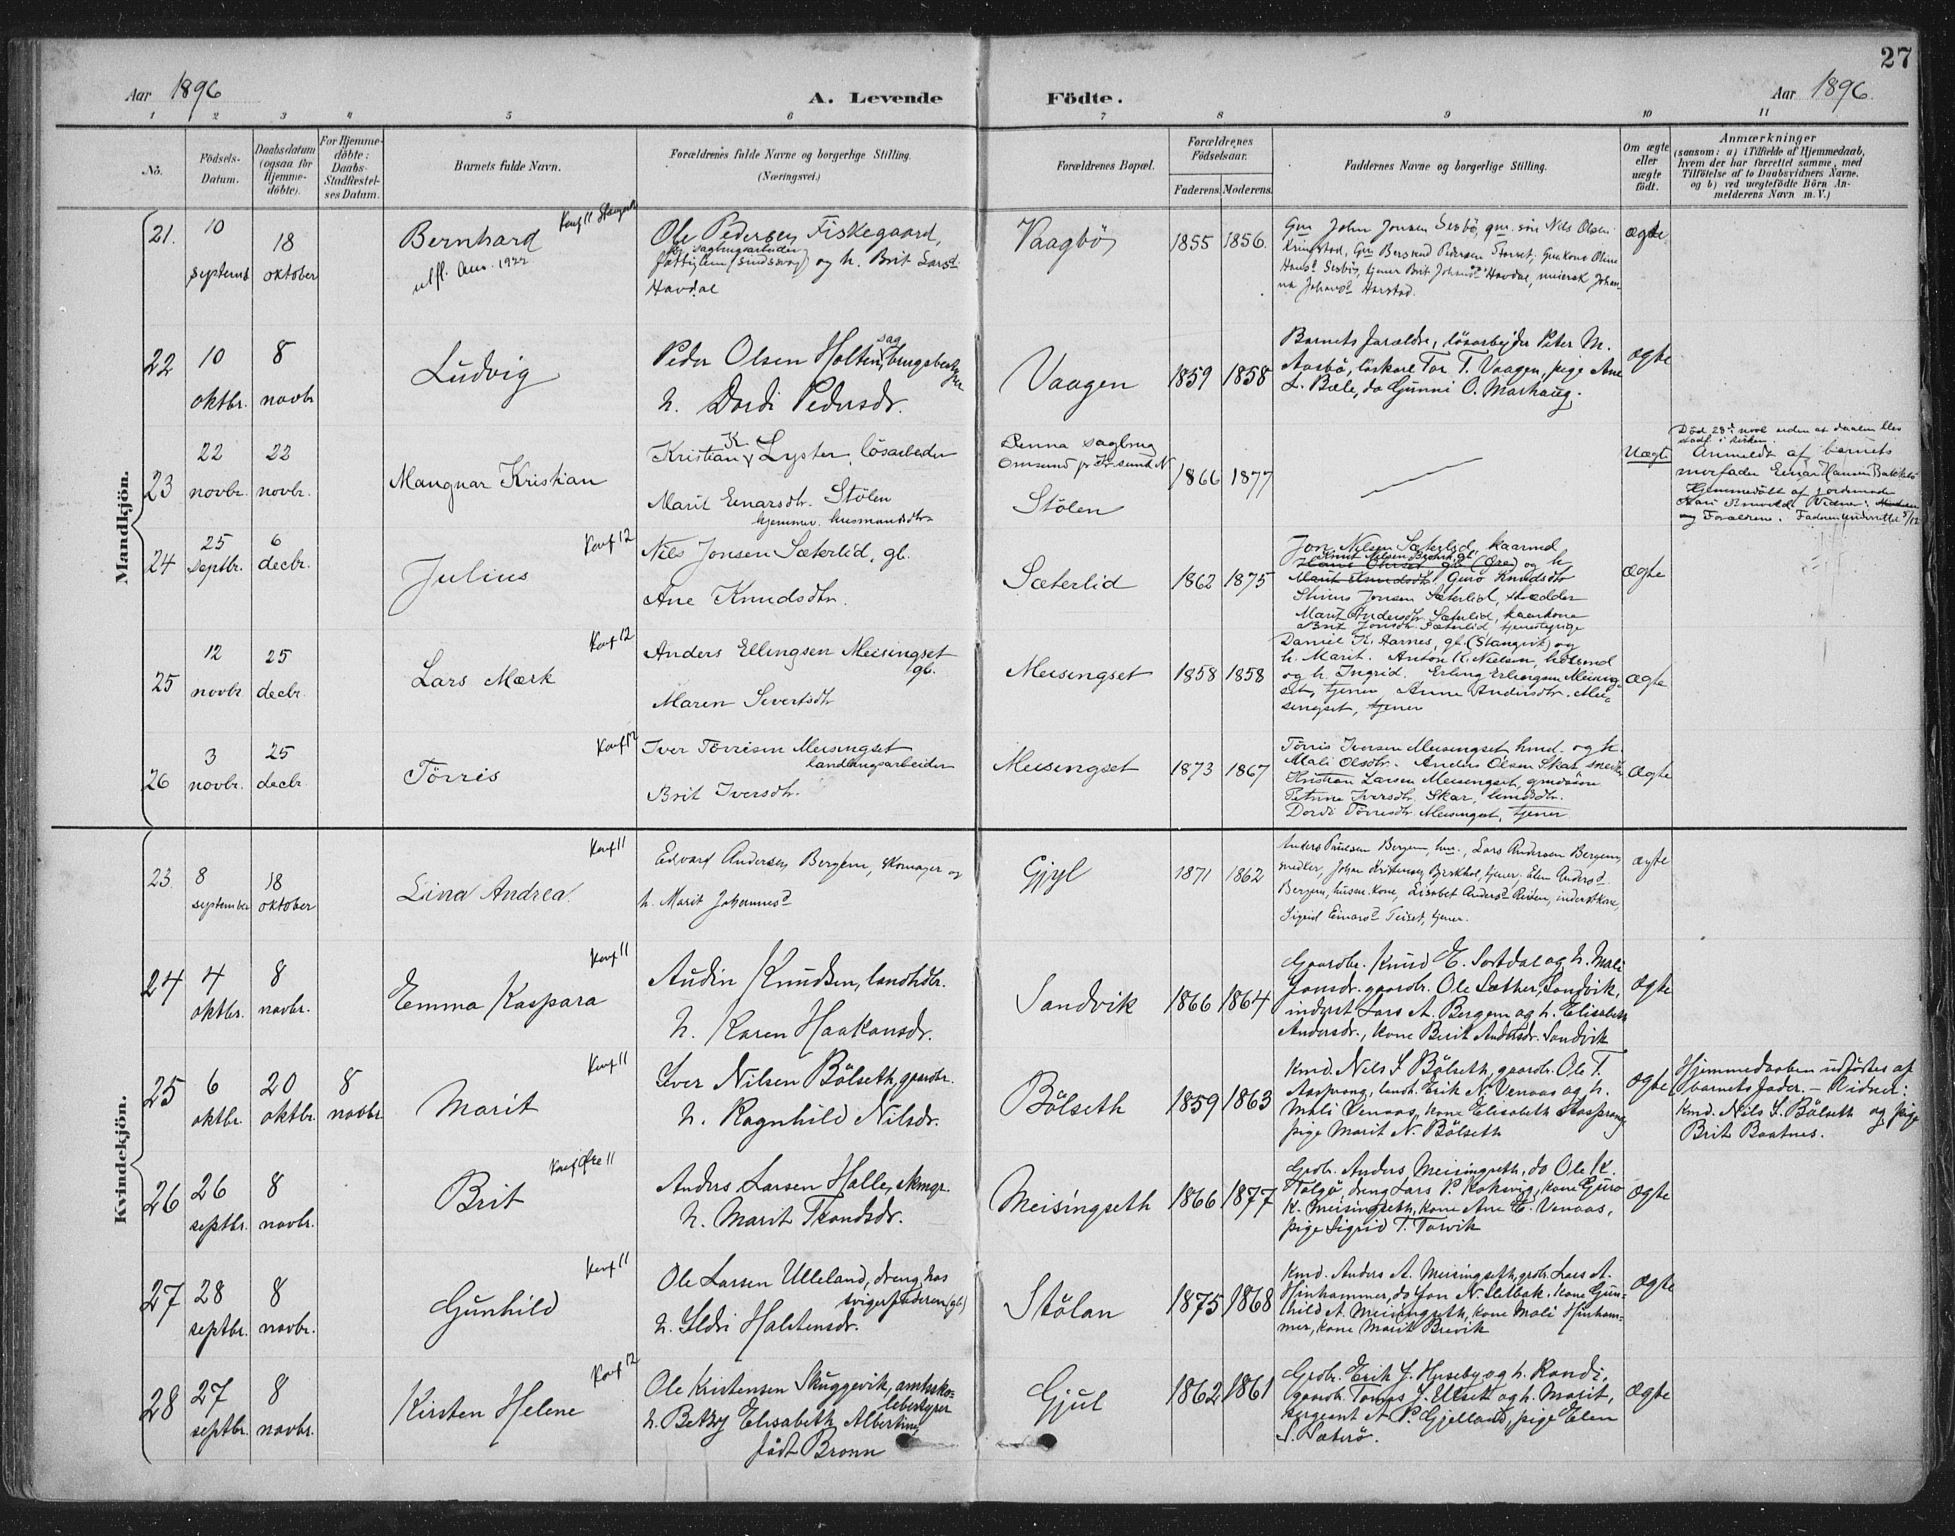 27
Aar 1896
A. Levende Födte.
Aar 1896.
1 2 3 4 5 6 7 8 9 10 11
No.
Födsels-Datum.
Daabsdatum (ogsaa for Hjemmedöbte).
For Hjemmedöbte: Daabs-Stadfæstelses Datum.
Barnets fulde Navn.
Forældrenes fulde Navne og borgerlige Stilling.
(Næringsvei.)
Forældrenes Bopæl.
Forældrenes Födselsaar.
Faderens. Moderens.
Faddernes Navne og borgerlige Stilling.
Om ægte eller uægte födt.
Anmærkninger
(saasom: a) i Tilfælde af Hjemmedaab,
hvem der har forrettet samme, med
Tilföielse af to Daabsvidners Navne.
og b) ved uægtefödte Börn Anmelderens Navn m. V.)
Mandkjön.
21. 10 septemb 18 oktober
Bernhard
Konf 11
Ole Pedersen Fiskegaard,
og h. Brit Larsd.
Havdal
Vaagbö
1855 1856.
Gm John Jonsen Sesbö, gm. sön Nils Olsen
Kringstad, Gm Bersvend Pedersen Storset, Gm kone Oline
Hansd. Sesbö, tjener Brit Johansd. Havdal, meiersk Johanna
Harstad.
ægte
22 10 oktbr. 8 novbr
Ludvig
Peder Olsen Holten, sagbrugsbestyrer
h. Dordi Pedersdr.
Vaagen
1859 1858
Barnets forældre, lösarbejder Peter M.
Aasbö, löskarl Tor T. Vaagen, pige Ane
L. Bæle, do Gunni O. Marhaug.
ægte
23 22 novbr. 22 novbr.
Mangnar Kristian
Kristian K. Lyster, lösarbeider
Marit Einarsdtr. Stölen
hjemmev. husmandsdtr
Penna sagbrug
Omsund pr Kr.sund N
Stölen
1866 1877
Uægte
Död 28de novb uden at daaben blev
stadf. i kirken.
Anmeldt af barnets
morfader Einar Hansen
Hjemmedöbt af jordmoder
og Forældrene.
24 25 septbr. 6 decbr.
Julius
Konf 12
Nils Jonsen Sæterlid, gb.
Ane Knudsdtr.
Sæterlid
1862 1875
Jon Nilsen Sæterlid, kaarmd
Guro Knudsdtr
Jonsen Sæterlid, skrædder
Marit Andersdtr. Sæterlid, kaarkone
Brit Jonsdtr. Sæterlid tjenestepige
Ægte
25 12 novbr 25 decbr.
Lars Mærk
Konf 12
Anders Ellingsen Meisingset
gb.
Maren Severtsdtr
Meisingset
1858 1858
Daniel K. Aarnes, gb. (Stangvik) og
h. Marit. Anton K. Nielsen, husmd
og h. Ingrid. Erling Erlingsen Meisingset,
tjener, Anne Andersdtr. Meisingset,
tjener
Ægte
26 3 novbr. 25 decbr.
Törris
Konf 12
Iver Törrisen Meisingset
landbrugsarbeider
Brit Iversdtr.
Meisingset
1873 1867
Törris Iversen Meisingset hmd. og h.
Mali Olsdtr. Anders Olsen Skar snedker
Kristian Larsen Meisingset, gmdssön
Petrine Iversdtr. Skar, hmdsdtr.
Dordi Törrisdtr. Meisingset, tjener
Ægte
Kvindekjön.
23. 8 september 18 oktober
Lina Andrea.
Konf 11
Edvard Andersen Bergem, skomager og
h. Marit Johannesd.
Gjyl
1871 1862
Anders Paulsen Bergem, hm., Lars Andersen Bergem,
smedler, Johan Kristensen Birkhol, tjener. Elen Andersd.
Bergem, husm.kone, Lisabet Andersd. Reiten, inderstkone,
Sigrid Einarsd. Teiset, tjener.
ægte
24 4 oktbr. 8 novbr.
Emma Kaspara
Konf 11
Audin Knudsen, landhdlr.
h. Karen Haakonsdr.
Sandvik
1866 1864
Gaardbr. Knud E. Sortdal og h. Mali
Jonsdr. gaardbr. Ole Sæther, Sandvik,
inderst Lars A. Bergem og h. Elisabeth
Andersdr., kone Berit Andersdr. Sandvik
Ægte
25 6 oktbr. 20 oktbr. 8 novbr
Marit
Konf 11
Iver Nilsen Bölseth, gaardbr.
h. Ragnhild Nilsdr.
Bölseth
1859 1863
Kmd. Nils I Bölseth, gaardbr. Ole T.
Aasprong, landh. Erik N. Venaas og h.
Mali Venaas, kone Elisabeth Aasprong
pige Marit N. Bölseth
Ægte
Hjemmedaaben udfördes af
barnets fader. – Vidner:
Kmd. Nils I. Bölseth og pige
Brit Baatnes.
26 26 septbr. 8 novbr.
Brit
Konf Öre 11
Anders Larsen Halle, skmgr.
h. Marit Trondsdr.
Meisingseth
1866 1877
Grdbr. Anders Meisingseth, do Ole K.
Stolgö, dreng Lars P. Koksvig, kone Guro
K. Meisingseth, kone Ane E. Venaas,
pige Sigrid T. Torvik
Ægte
27 28 septbr. 8 novbr.
Gunhild
Konf 11
Ole Larsen Ulleland, dreng hos
svigerfaderen (gb.)
h. Ildri Halstensdr.
Stölan
1875 1868
Kmd. Anders A. Meisingseth, grdb. Lars A.
Hinhammer, do Jon N. Slatbak. kone Gunhild
A Meisingseth, kone Mali Hinhammer,
kone Marit Brevik
Ægte
28 27 septbr. 8 novbr.
Kirsten Helene
Konf 12
Ole Kristensen Skuggevik, amtsskolebestyrer
h. Betzy Elisabeth Albertine
födt Bronn
Gjul
1862 1861
Grdbr. Erik J. Hyseby og h. Randi,
gaardb. Tomas J. Ulset og h. Marit,
sergeant A. P. Gjelland, pige Elen
S. Sæterö.
Ægte